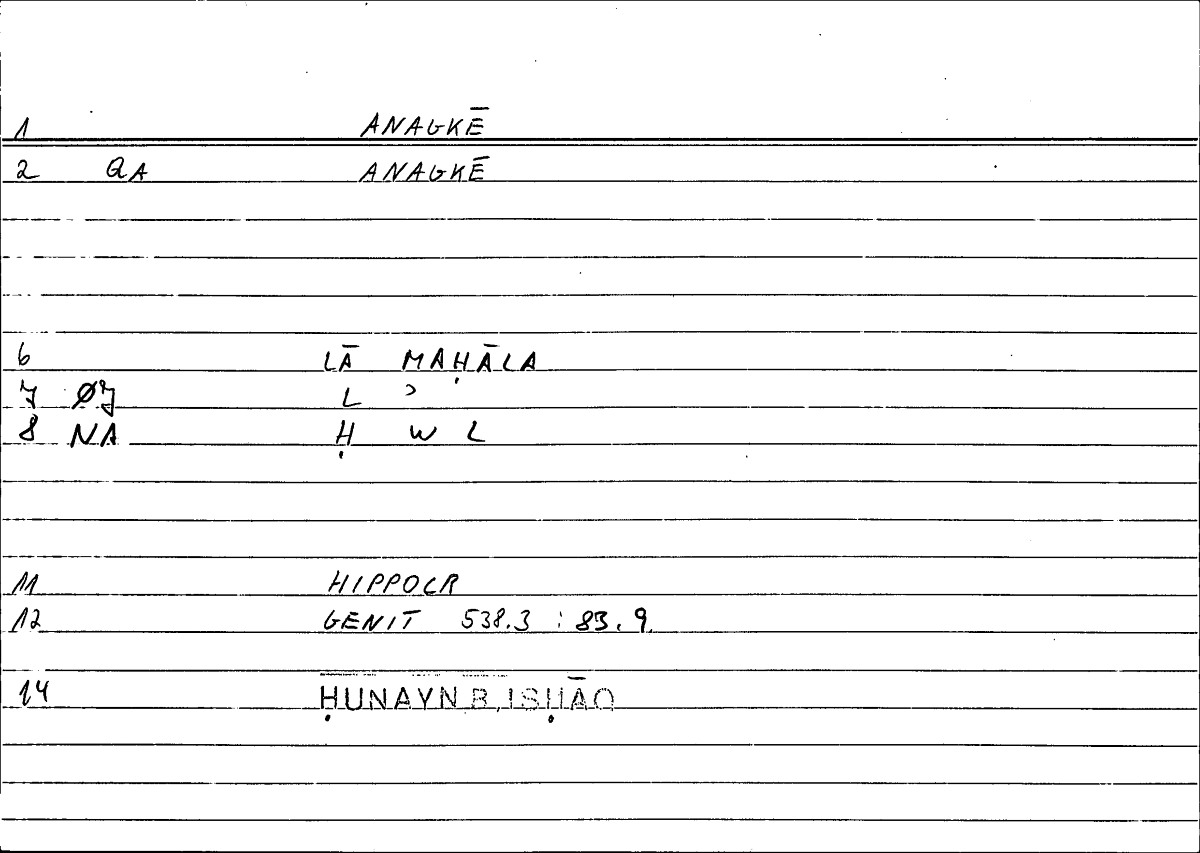 1 ANAGKĒ
2 QA ANAGKĒ
6 LĀ MAḤĀLA
7 Ø7 L ʾ
8 NA Ḥ W L
11 HIPPOCR
12 GENIT 538.3 : 83.9.
14 ḤUNAYN B. ISḤĀQ